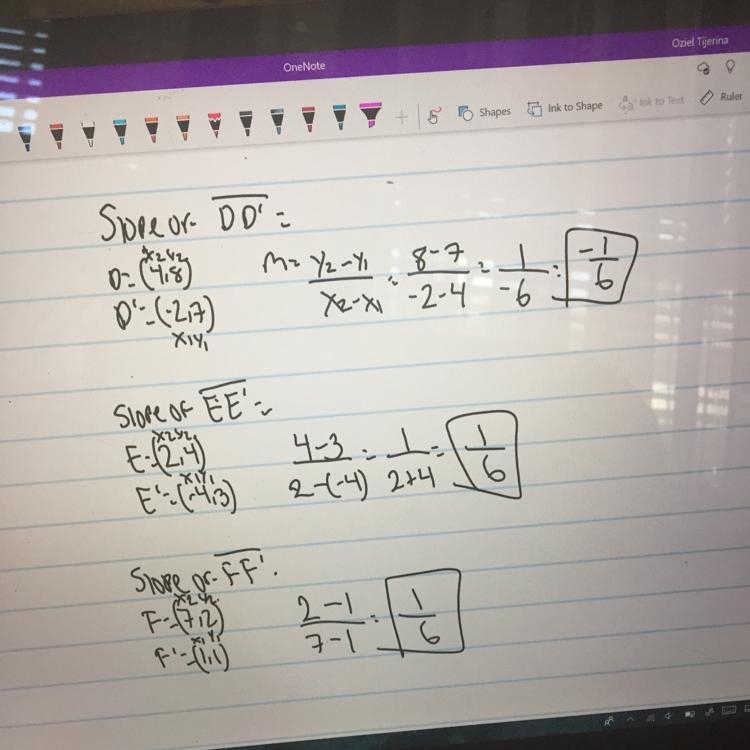 Oziel Tijerina
OneNote
Shapes Ink to Shape Ink to Text Ruler
Slope of DD' =
x2 y2
D = (4,8)
D' = (-2,7)
x1 y1
m = y2 - y1 / x2 - x1 = 8 - 7 / -2 - 4 = 1 / -6 = -1 / 6
Slope of EE' =
x2 y2
E = (2,4)
x1 y1
E' = (-4,3)
4 - 3 / 2 - (-4) = 1 / 2 + 4 = 1 / 6
Slope of FF' .
x2 y2
F = (7,2)
x1 y1
F' = (1,1)
2 - 1 / 7 - 1 = 1 / 6